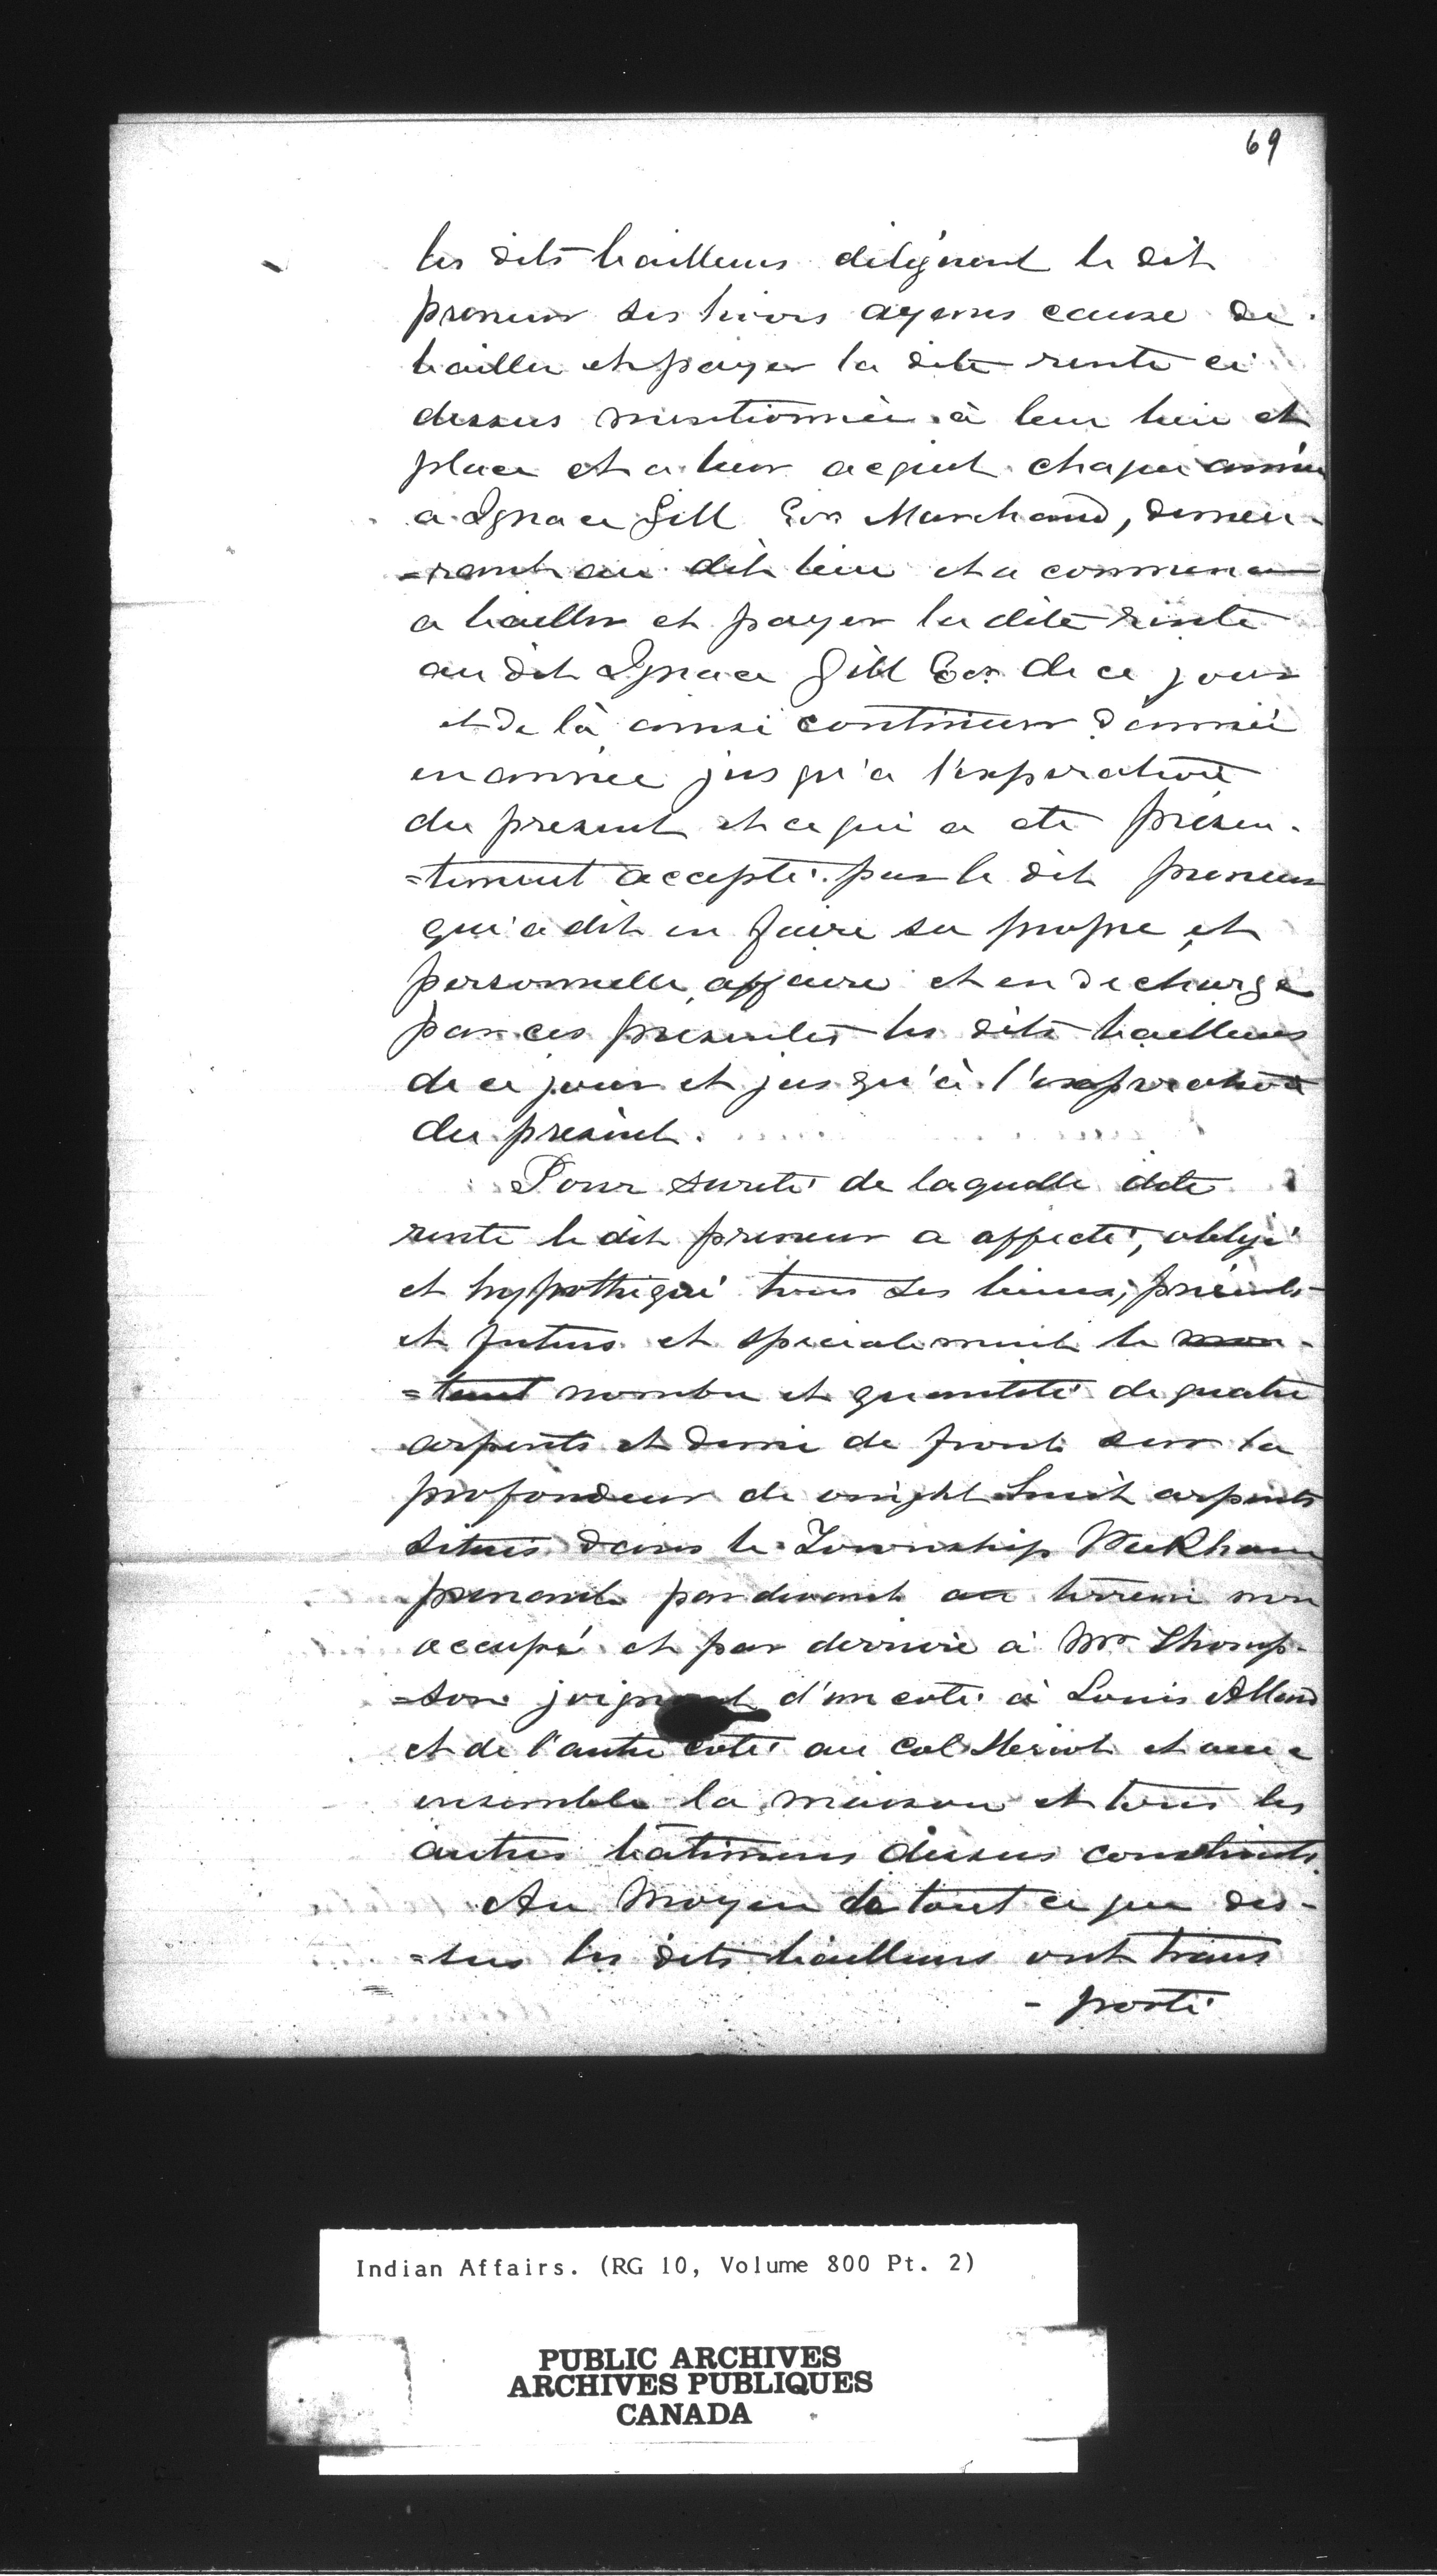 69
les dits bailleurs délégnent le dit
preneur ses hoirs ayans cause de
bailler et payer la dite rente ci
dessus mentionnée à leur lieu et
place et a leur acquit chaque année
a Ignace Gill Ecr Marchand, demeu-
=rant au dit lieu et a commencer
a bailler et payer la dite rente
au dit Ignace Gill Ecr. de ce jour
et de là ainsi continuer d'année
en année jusqu'a l'expiration
du present et ce qui a ete présen-
=tement accepté par le dit preneur
qui a dit en faire sa propre et
personnelle affaire et en decharge
par ces presentes les dits bailleurs
de ce jour et jusqu'à l'expiration
du present.
Pour sureté de laquelle dite
rente le dit preneur a affecté, obligé
et hypothéqué tous ses biens, présents
et futurs et specialement le mon-
=tant nombre et quantité de quatre
arpents et demi de front sur la
profondeur de vingt huit arpents
situés dans le Township Wickham
prenant par devant au terrein non
occupé et par derriere à Mr Thomp-
=son joignant d'un coté à Louis Allard
et de l'autre coté au Col Heriot et avec
ensemble la maison et tous les
autres bâtimens dessus construits.
Au Moyen de tout ce que des-
=sus les dits bailleurs ont trans
- porté
Indian Affairs. (RG 10, Volume 800 Pt. 2)
PUBLIC ARCHIVES
ARCHIVES PUBLIQUES
CANADA